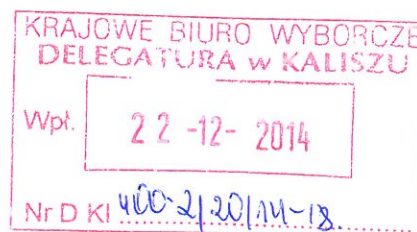 KRAJOWE BIURO WYBORCZE
DELEGATURA w KALISZU
Wpł. 22 -12- 2014
Nr D Kl 400-2/20/14-18.